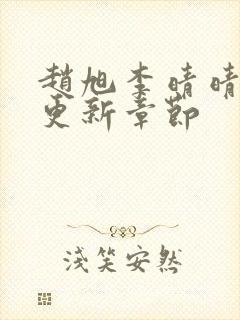 趙旭李晴晴
更新章節
淺笑安然